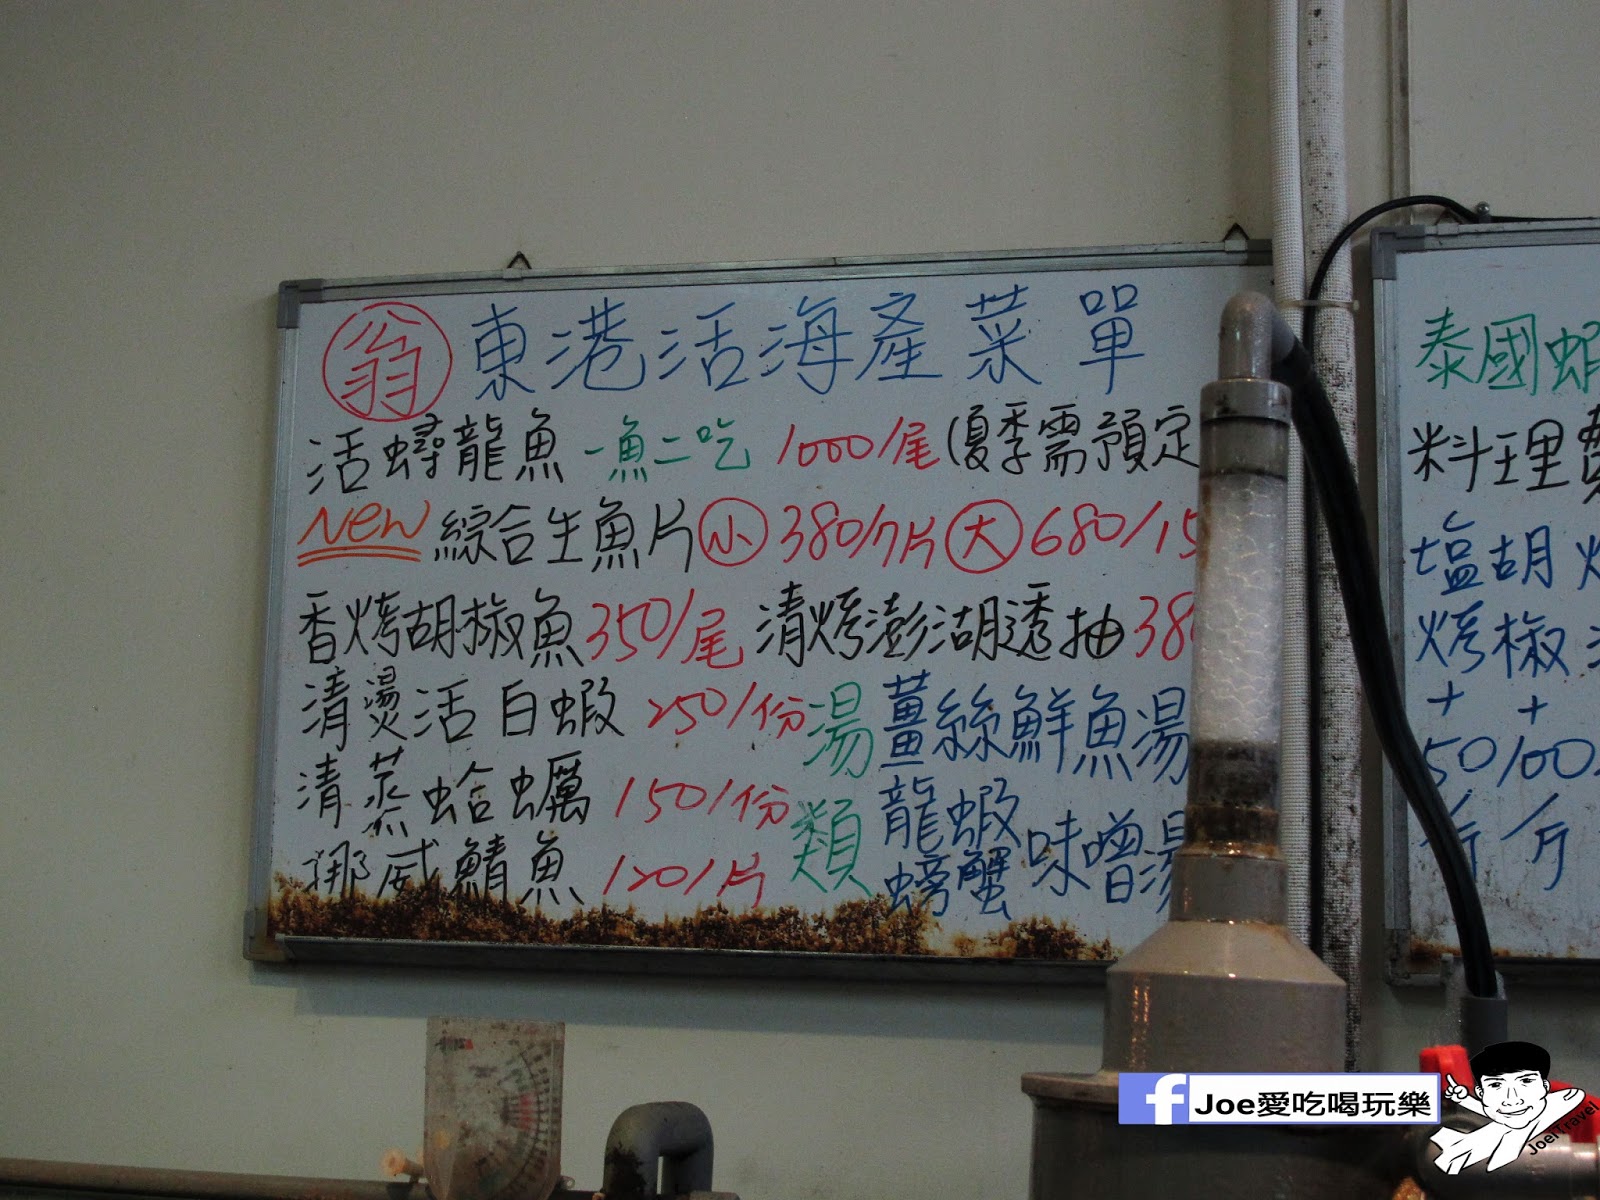 翁 東港活海產菜單
活蟳龍魚 一魚二吃 1000/尾(夏季需預定
NEW 綜合生魚片 小 380/7片 大 680/15
香烤胡椒魚 350/尾 清烤澎湖透抽 38
清燙活白蝦 250/份
清蒸蛤蠣 150/份
挪威鯖魚 120/片
湯類
薑絲鮮魚湯
龍蝦
螃蟹 味噌湯
泰國蝦
料理費
塩烤+50/斤
胡椒+100/斤
Joe愛吃喝玩樂
JoelTravel